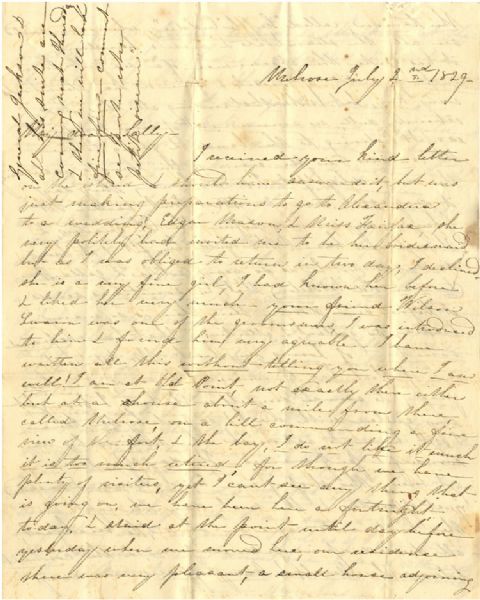 Melrose July 2nd 1829
My dear Sally
I received your kind letter
on the I should have answered it, but was
just making preparations to go to Alexandria
to a wedding, Edgar Mason & Miss Fairfax she
very politely had invited me to be her bridesmaid
but as I was obliged to return in two days, I declined
she is a very fine girl, I had known her before
& liked her very much - your friend Wilson
was one of the groomsmen, I was introduced
to him & found him very agreable I have
written all this without telling you where I am
well! I am at Old Point, not exactly there either
but at a house about a mile from there
called Melrose, on a hill commanding a fine
view of the fort, & the bay, I do not like it much
it is too much retired, for though we have
plenty of visitors, yet I cant see any thing that
is going on, we have been here a fortnight
today, I staid at the point until day before
yesterday when we moved here, our residence
there was very pleasant, a small house adjoining
General Jackson
& suite are
coming next
& that we will